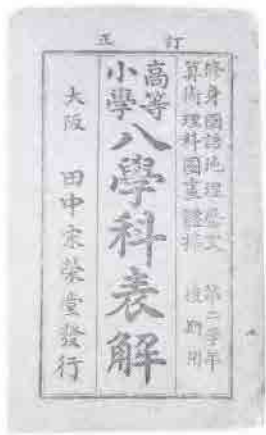 訂正
修身國語地理歷史
算術理科圖畫體操
第二學年
後期用
高等
小學
八學科表解
大阪 田中宋榮堂發行